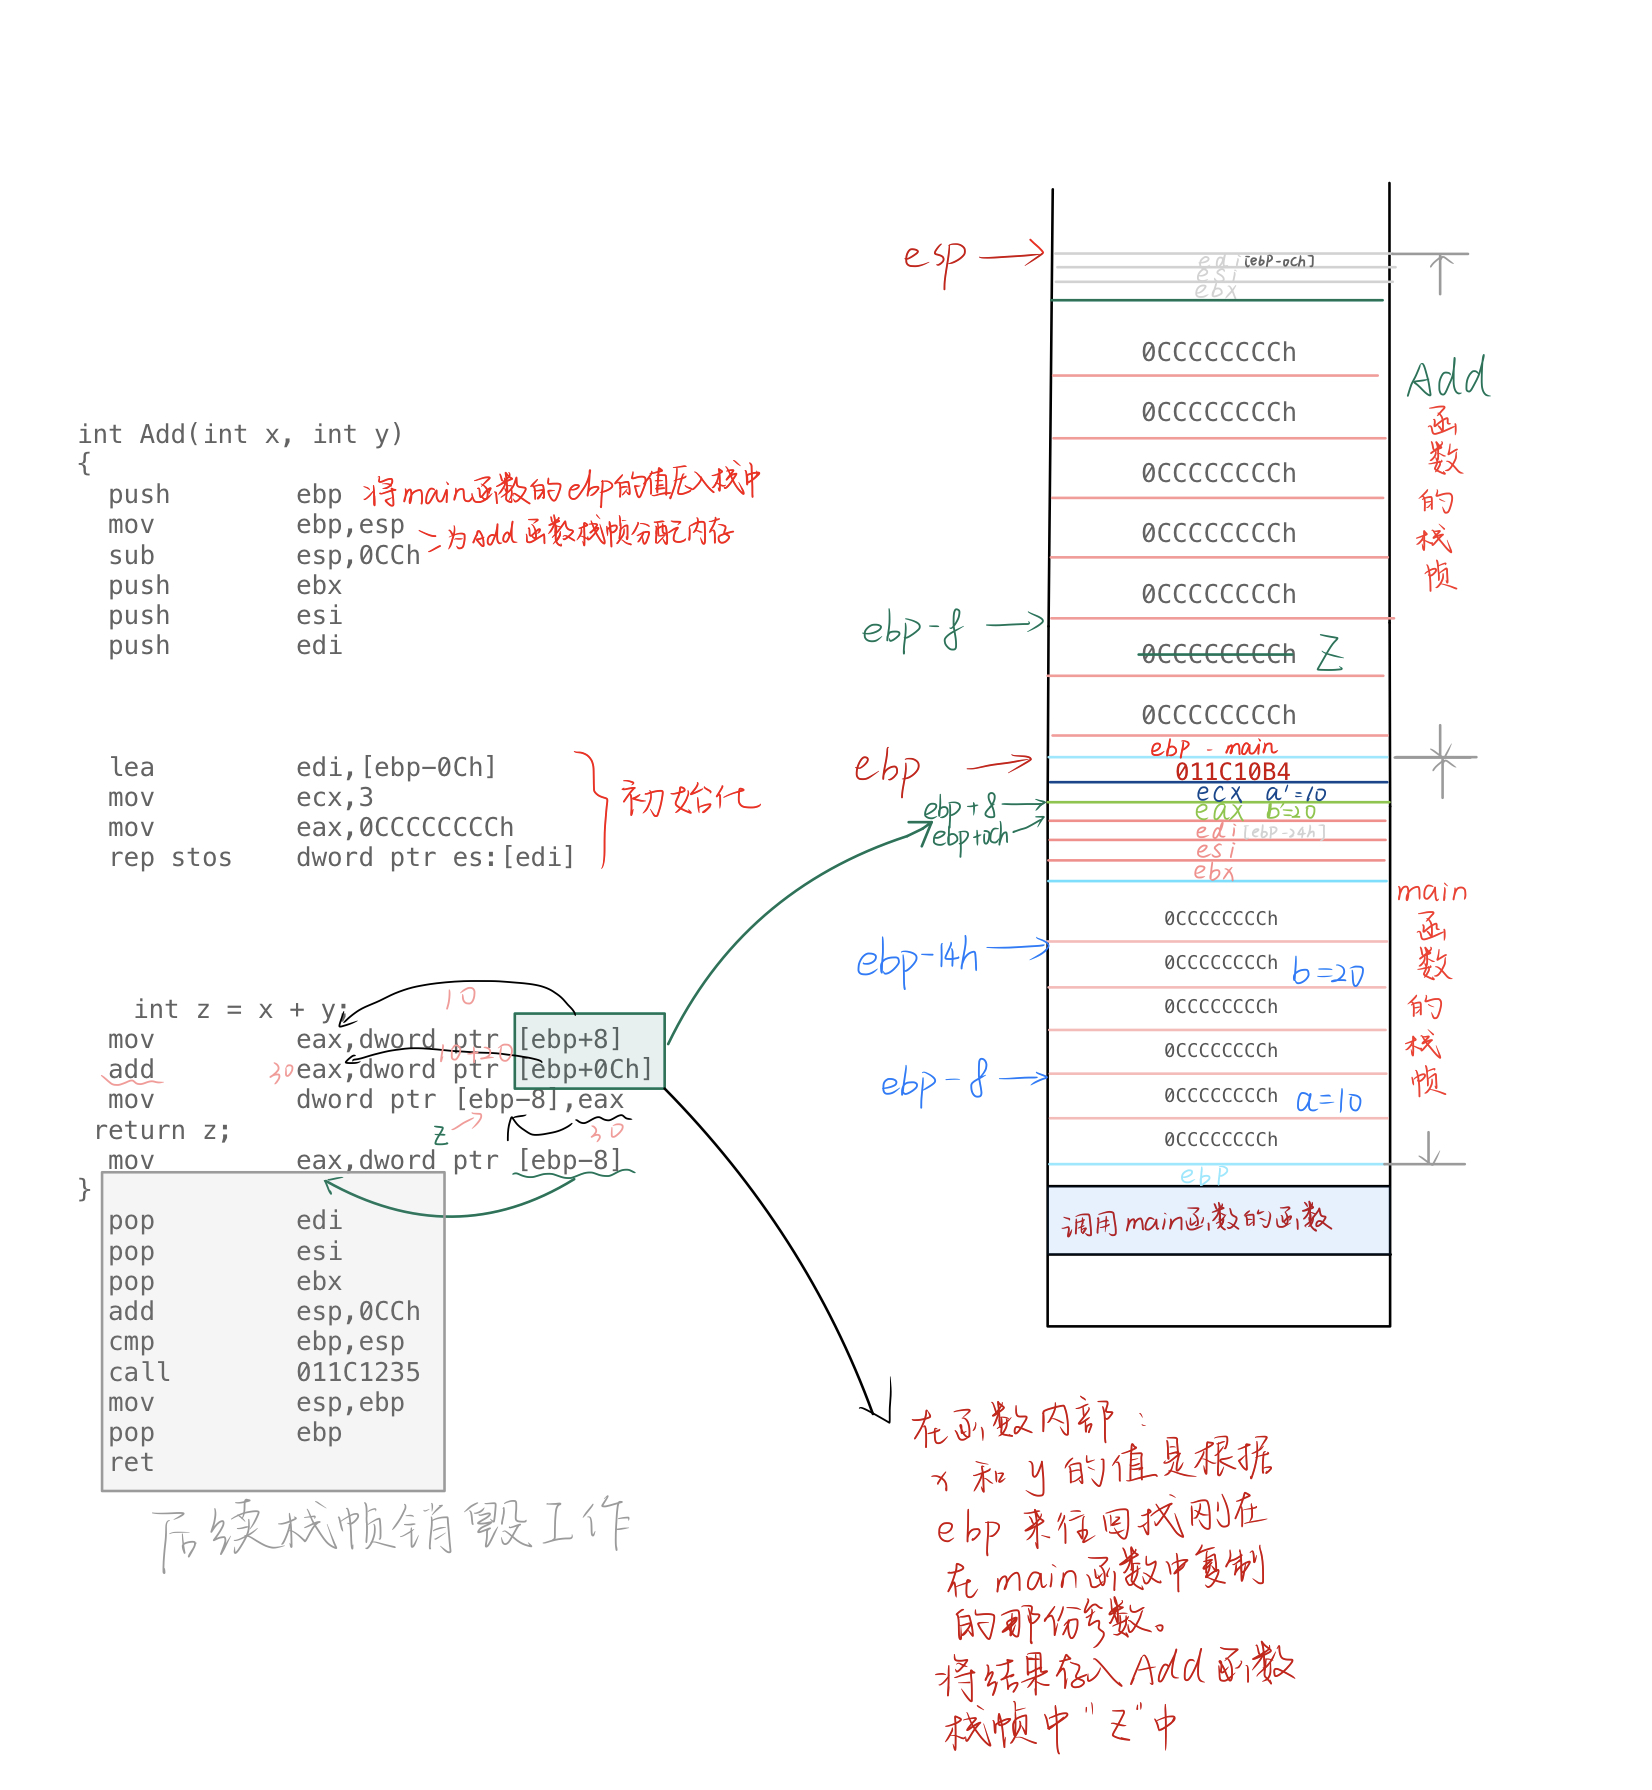 int Add(int x, int y)
{
push ebp 将main函数的ebp的值压入栈中
mov ebp,esp
sub esp,0CCh 为Add函数栈帧分配内存
push ebx
push esi
push edi
lea edi,[ebp-0Ch]
mov ecx,3
mov eax,0CCCCCCCCh
rep stos dword ptr es:[edi]
初始化
int z = x + y;
10
mov eax,dword ptr [ebp+8]
10+20
add 30 eax,dword ptr [ebp+0Ch]
mov dword ptr [ebp-8],eax
return z;
z 30
mov eax,dword ptr [ebp-8]
}
pop edi
pop esi
pop ebx
add esp,0CCh
cmp ebp,esp
call 011C1235
mov esp,ebp
pop ebp
ret
后续栈帧销毁工作
esp
edi [ebp-0Ch]
esi
ebx
0CCCCCCCCh
0CCCCCCCCh
0CCCCCCCCh
0CCCCCCCCh
0CCCCCCCCh
ebp-8
0CCCCCCCCh z
0CCCCCCCCh
Add
函
数
的
栈
帧
ebp - main
ebp
011C10B4
ecx a'=10
ebp+8
eax b'=20
ebp+0Ch
edi [ebp-24h]
esi
ebx
0CCCCCCCCh
ebp-14h
0CCCCCCCCh b=20
0CCCCCCCCh
0CCCCCCCCh
ebp-8
0CCCCCCCCh a=10
0CCCCCCCCh
ebp
main
函
数
的
栈
帧
调用main函数的函数
在函数内部：
x 和 y 的值是根据
ebp 来往回找刚在
在main函数中复制
的那份参数。
将结果存入Add函数
栈帧中"z"中